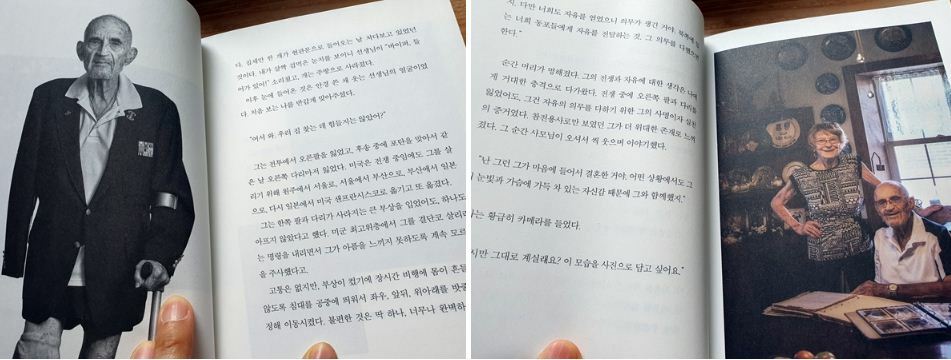 다. 집채만 한 개가 현관문으로 들어오는 날 쳐다보고 있었던
것이다. 내가 살짝 겁먹은 눈치를 보이니 선생님이 "바이퍼, 들
어가 있어!" 소리쳤고, 개는 주방으로 사라졌다.
이후 눈에 들어온 것은 안경 쓴 채 웃는 선생님의 얼굴이었
다. 처음 보는 나를 반갑게 맞아주셨다.
"어서 와. 우리 집 찾는 데 힘들지는 않았어?"
그는 전투에서 오른팔을 잃었고, 후송 중에 포탄을 맞아서 같
은 날 오른쪽 다리마저 잃었다. 미국은 전쟁 중임에도 그를 살
리기 위해 원주에서 서울로, 서울에서 부산으로, 부산에서 일본
으로, 다시 일본에서 미국 샌프란시스코로 옮기고 또 옮겼다.
그는 한쪽 팔과 다리가 사라지는 큰 부상을 입었어도, 하나도
아프지 않았다고 했다. 미군 최고위층에서 그를 결단코 살리라
는 명령을 내리면서 그가 아픔을 느끼지 못하도록 계속 모르
을 주사했다고.
고통은 없지만, 부상이 컸기에 장시간 비행에 몸이 흔들
않도록 침대를 공중에 띄워서 좌우, 앞뒤, 위아래를 맞
정해 이동시켰다. 불편한 것은 딱 하나, 너무나 완벽하
지. 다만 너희도 자유를 얻었으니 의무가 생긴 거야. 북쪽에
는 너희 동포들에게 자유를 전달하는 것, 그 의무를 다했으면
한다."
순간 머리가 멍해졌다. 그의 전쟁과 자유에 대한 생각은 나에
게 거대한 충격으로 다가왔다. 전쟁 중에 오른쪽 팔과 다리를
잃었어도, 그건 자유의 의무를 다하기 위한 그의 사명이자 실천
의 증거였다. 참전용사로만 보였던 그가 더 위대한 존재로 느껴
졌다. 그 순간 사모님이 오셔서 씩 웃으며 이야기했다.
"난 그런 그가 마음에 들어서 결혼한 거야. 어떤 상황에서도 그
눈빛과 가슴에 가득 차 있는 자신감 때문에 그와 함께했지."
나는 황급히 카메라를 들었다.
시만 그대로 계실래요? 이 모습을 사진으로 담고 싶어요."